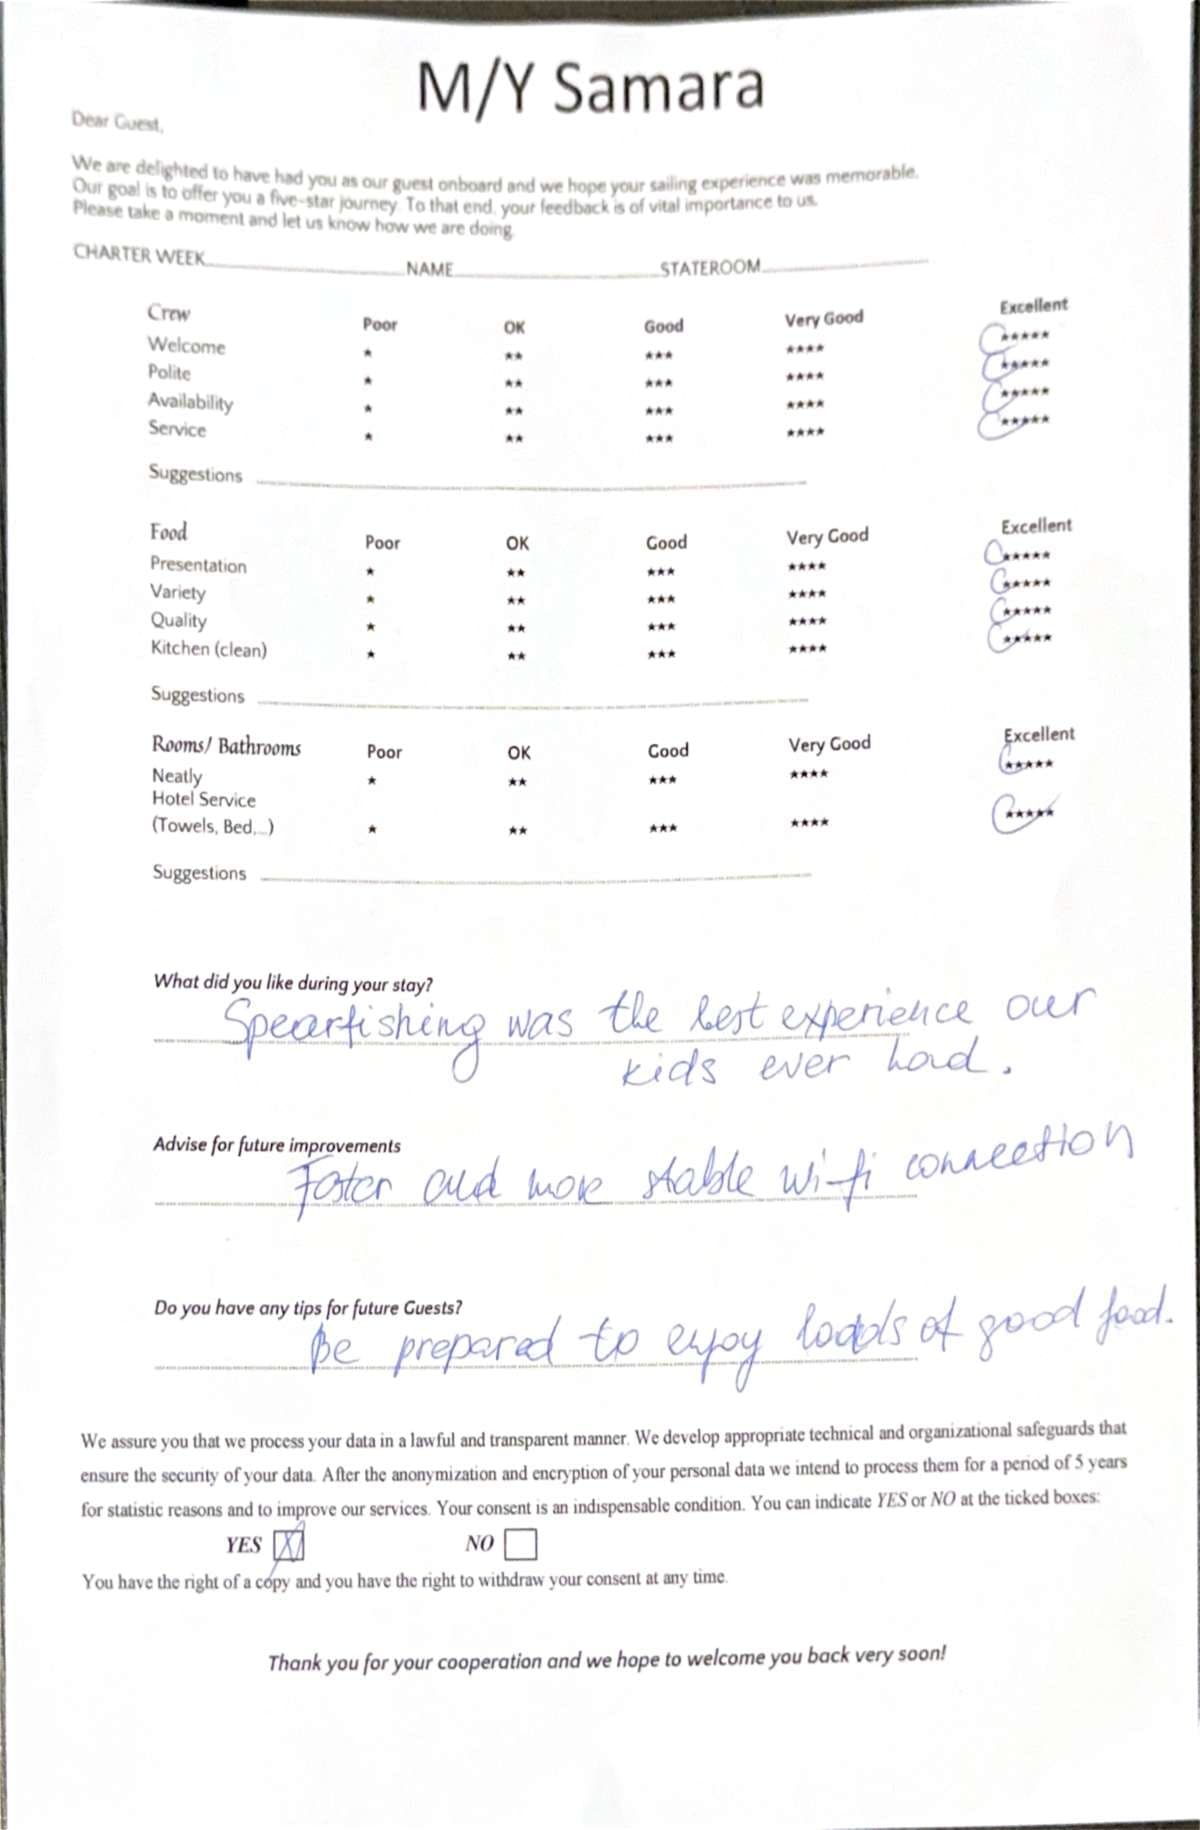 M/Y Samara
Dear Guest,
We are delighted to have had you as our guest onboard and we hope your sailing experience was memorable.
Our goal is to offer you a five-star journey. To that end, your feedback is of vital importance to us.
Please take a moment and let us know how we are doing.
CHARTER WEEK NAME STATEROOM
Crew Poor OK Good Very Good Excellent
Welcome * ** *** **** *****
Polite * ** *** **** *****
Availability * ** *** **** *****
Service * ** *** **** *****
Suggestions
Food Poor OK Good Very Good Excellent
Presentation * ** *** **** *****
Variety * ** *** **** *****
Quality * ** *** **** *****
Kitchen (clean) * ** *** **** *****
Suggestions
Rooms/ Bathrooms Poor OK Good Very Good Excellent
Neatly * ** *** **** *****
Hotel Service
(Towels, Bed,...) * ** *** **** *****
Suggestions
What did you like during your stay?
Spearfishing was the best experience our
kids ever had.
Advise for future improvements
Fater and more stable wi-fi connection
Do you have any tips for future Guests?
Be prepared to enjoy loads of good food.
We assure you that we process your data in a lawful and transparent manner. We develop appropriate technical and organizational safeguards that
ensure the security of your data. After the anonymization and encryption of your personal data we intend to process them for a period of 5 years
for statistic reasons and to improve our services. Your consent is an indispensable condition. You can indicate YES or NO at the ticked boxes:
YES X NO
You have the right of a copy and you have the right to withdraw your consent at any time.
Thank you for your cooperation and we hope to welcome you back very soon!